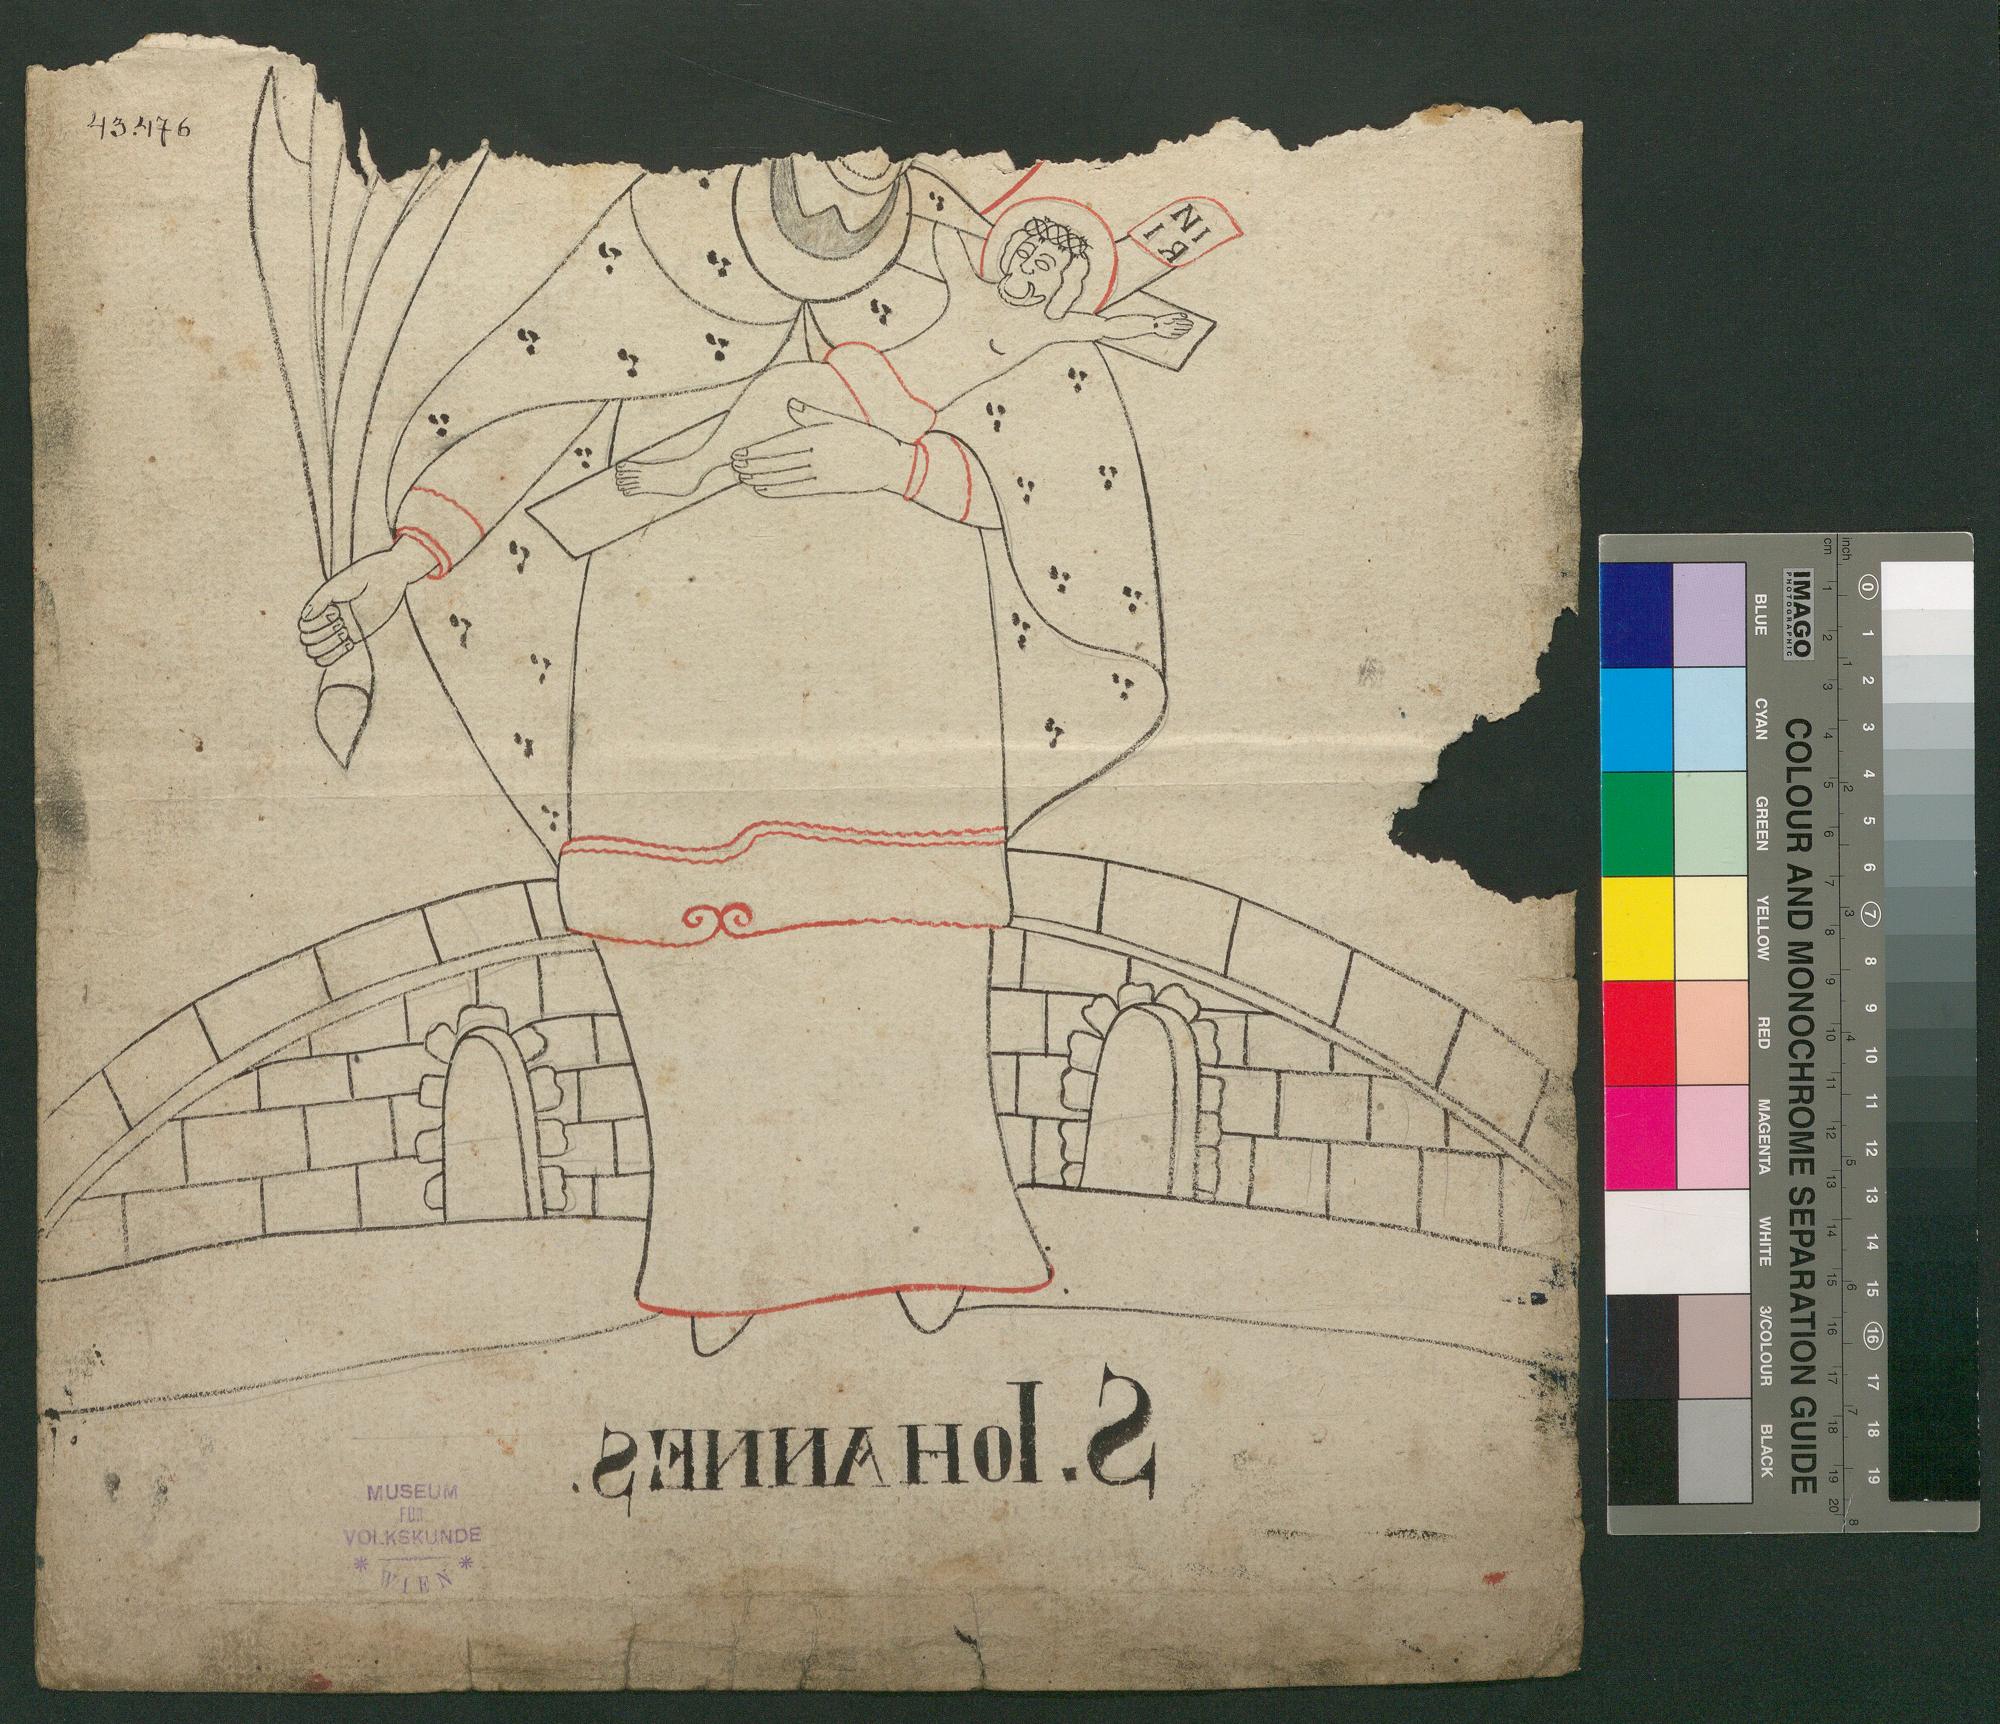 43.476
IN
RI
S. IOHANNES.
MUSEUM
FÜR
VOLKSKUNDE
* WIEN *
cm
inch
IMAGO
PHOTOGRAPHIC
COLOUR AND MONOCHROME SEPARATION GUIDE
BLUE
CYAN
GREEN
YELLOW
RED
MAGENTA
WHITE
3/COLOUR
BLACK
1 2 3 4 5 6 7 8 9 10 11 12 13 14 15 16 17 18 19 20
1 2 3 4 5 6 7 8
0 1 2 3 4 5 6 7 8 9 10 11 12 13 14 15 16 17 18 19